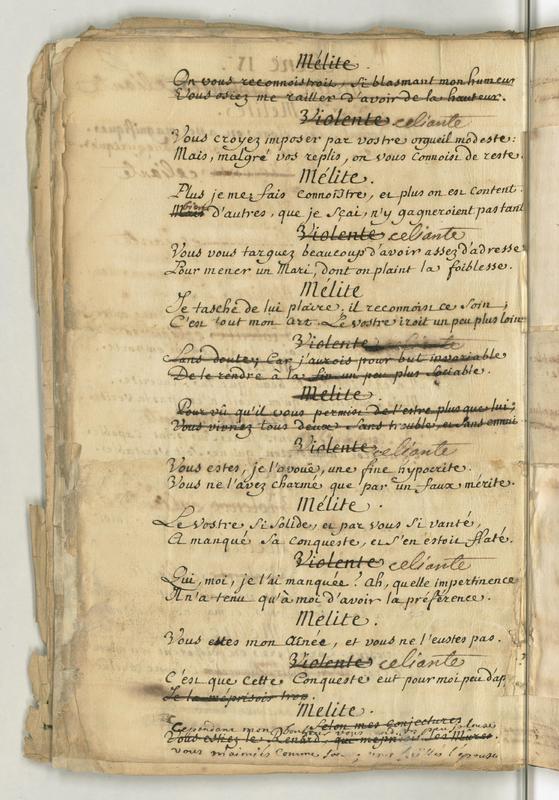 Mélite.
On vous reconnoistroit, si blasmant mon humeur
Vous osiez me railler d'avoir de la hauteur.
Violente celiante
Vous croyez imposer par vostre orgueil modeste:
Mais, malgré vos replis, on vous connoist de reste.
Mélite.
Plus je me fais connoistre, et plus on est content.
Mais d'autres, que je sçai, n'y gagneroient pas tant
Violente celiante
Vous vous targuez beaucoup d'avoir assez d'adresse
Pour mener un Mari, dont on plaint la foiblesse.
Mélite
Je tasche de lui plaire; il reconnoist ce soin;
C'est tout mon art. Le vostre iroit un peu plus loin
Violente
Sans doute; Car j'aurois pour but invariable
De le rendre à la fin un peu plus sociable.
Mélite.
Pour vû qu'il vous permist de l'estre plus que lui;
Vous vivriez tous deux sans trouble, et sans ennui
Violente celiante
Vous estes, je l'avoüe, une fine hypocrite.
Vous ne l'avez charmé que par un faux mérite.
Mélite.
Le vostre si solide, et par vous si vanté,
A manqué sa conqueste, et s'en estoit flaté.
Violente celiante
Qui, moi, je l'ai manquée? Ah, quelle impertinence
Il n'a tenu qu'à moi d'avoir la préférence.
Mélite.
Vous estes mon Ainée, et vous ne l'eustes pas.
Violente celiante
C'est que cette Conqueste eut pour moi peu d'ap
Je la méprisois trop.
Mélite.
Selon mes conjectures
Cependant mon bonheur vous
Vous estiez le Renard, qui méprisoit les Mûres.
vous m'aimiez comme